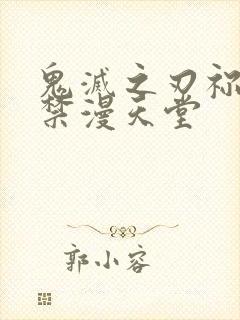 鬼灭之刃祢
禁漫天堂
郭小容